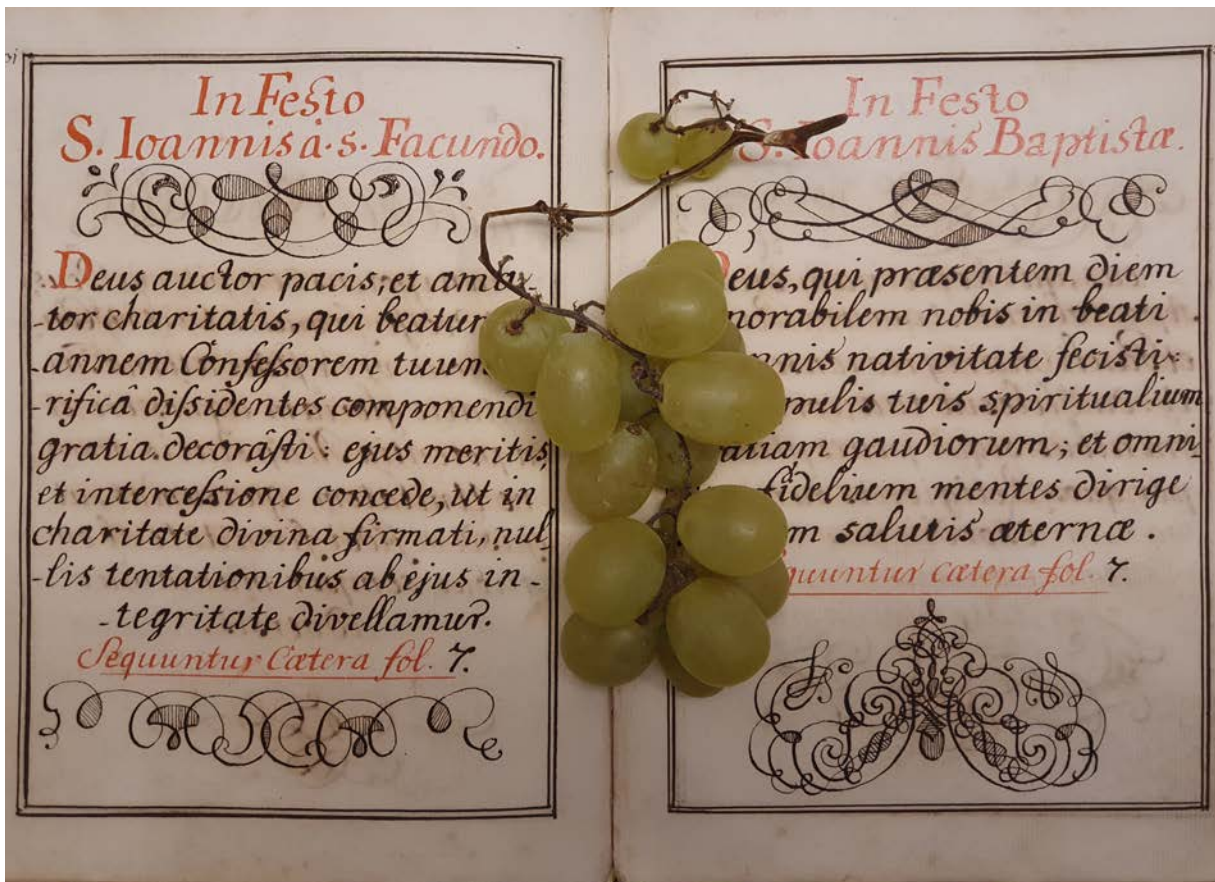 In Festo
S. Ioannis à·s·Facundo.
Deus auctor pacis, et ama-
-tor charitatis, qui
-annem Confessorem tuum
-rificâ dissidentes componendi
gratia decorâsti: ejus meritis,
et intercessione concede, ut in
charitate divina firmati, nul-
-lis tentationibus ab ejus in-
-tegritate divellamur.
Sequuntur Cætera fol. 7.
In Festo
S. Ioannis Baptistæ.
Deus, qui præsentem diem
nobis in beati
nativitate fecisti:
tuis spiritualium
gaudiorum; et omni-
fidelium mentes dirige
salutis æternæ.
cætera fol. 7.